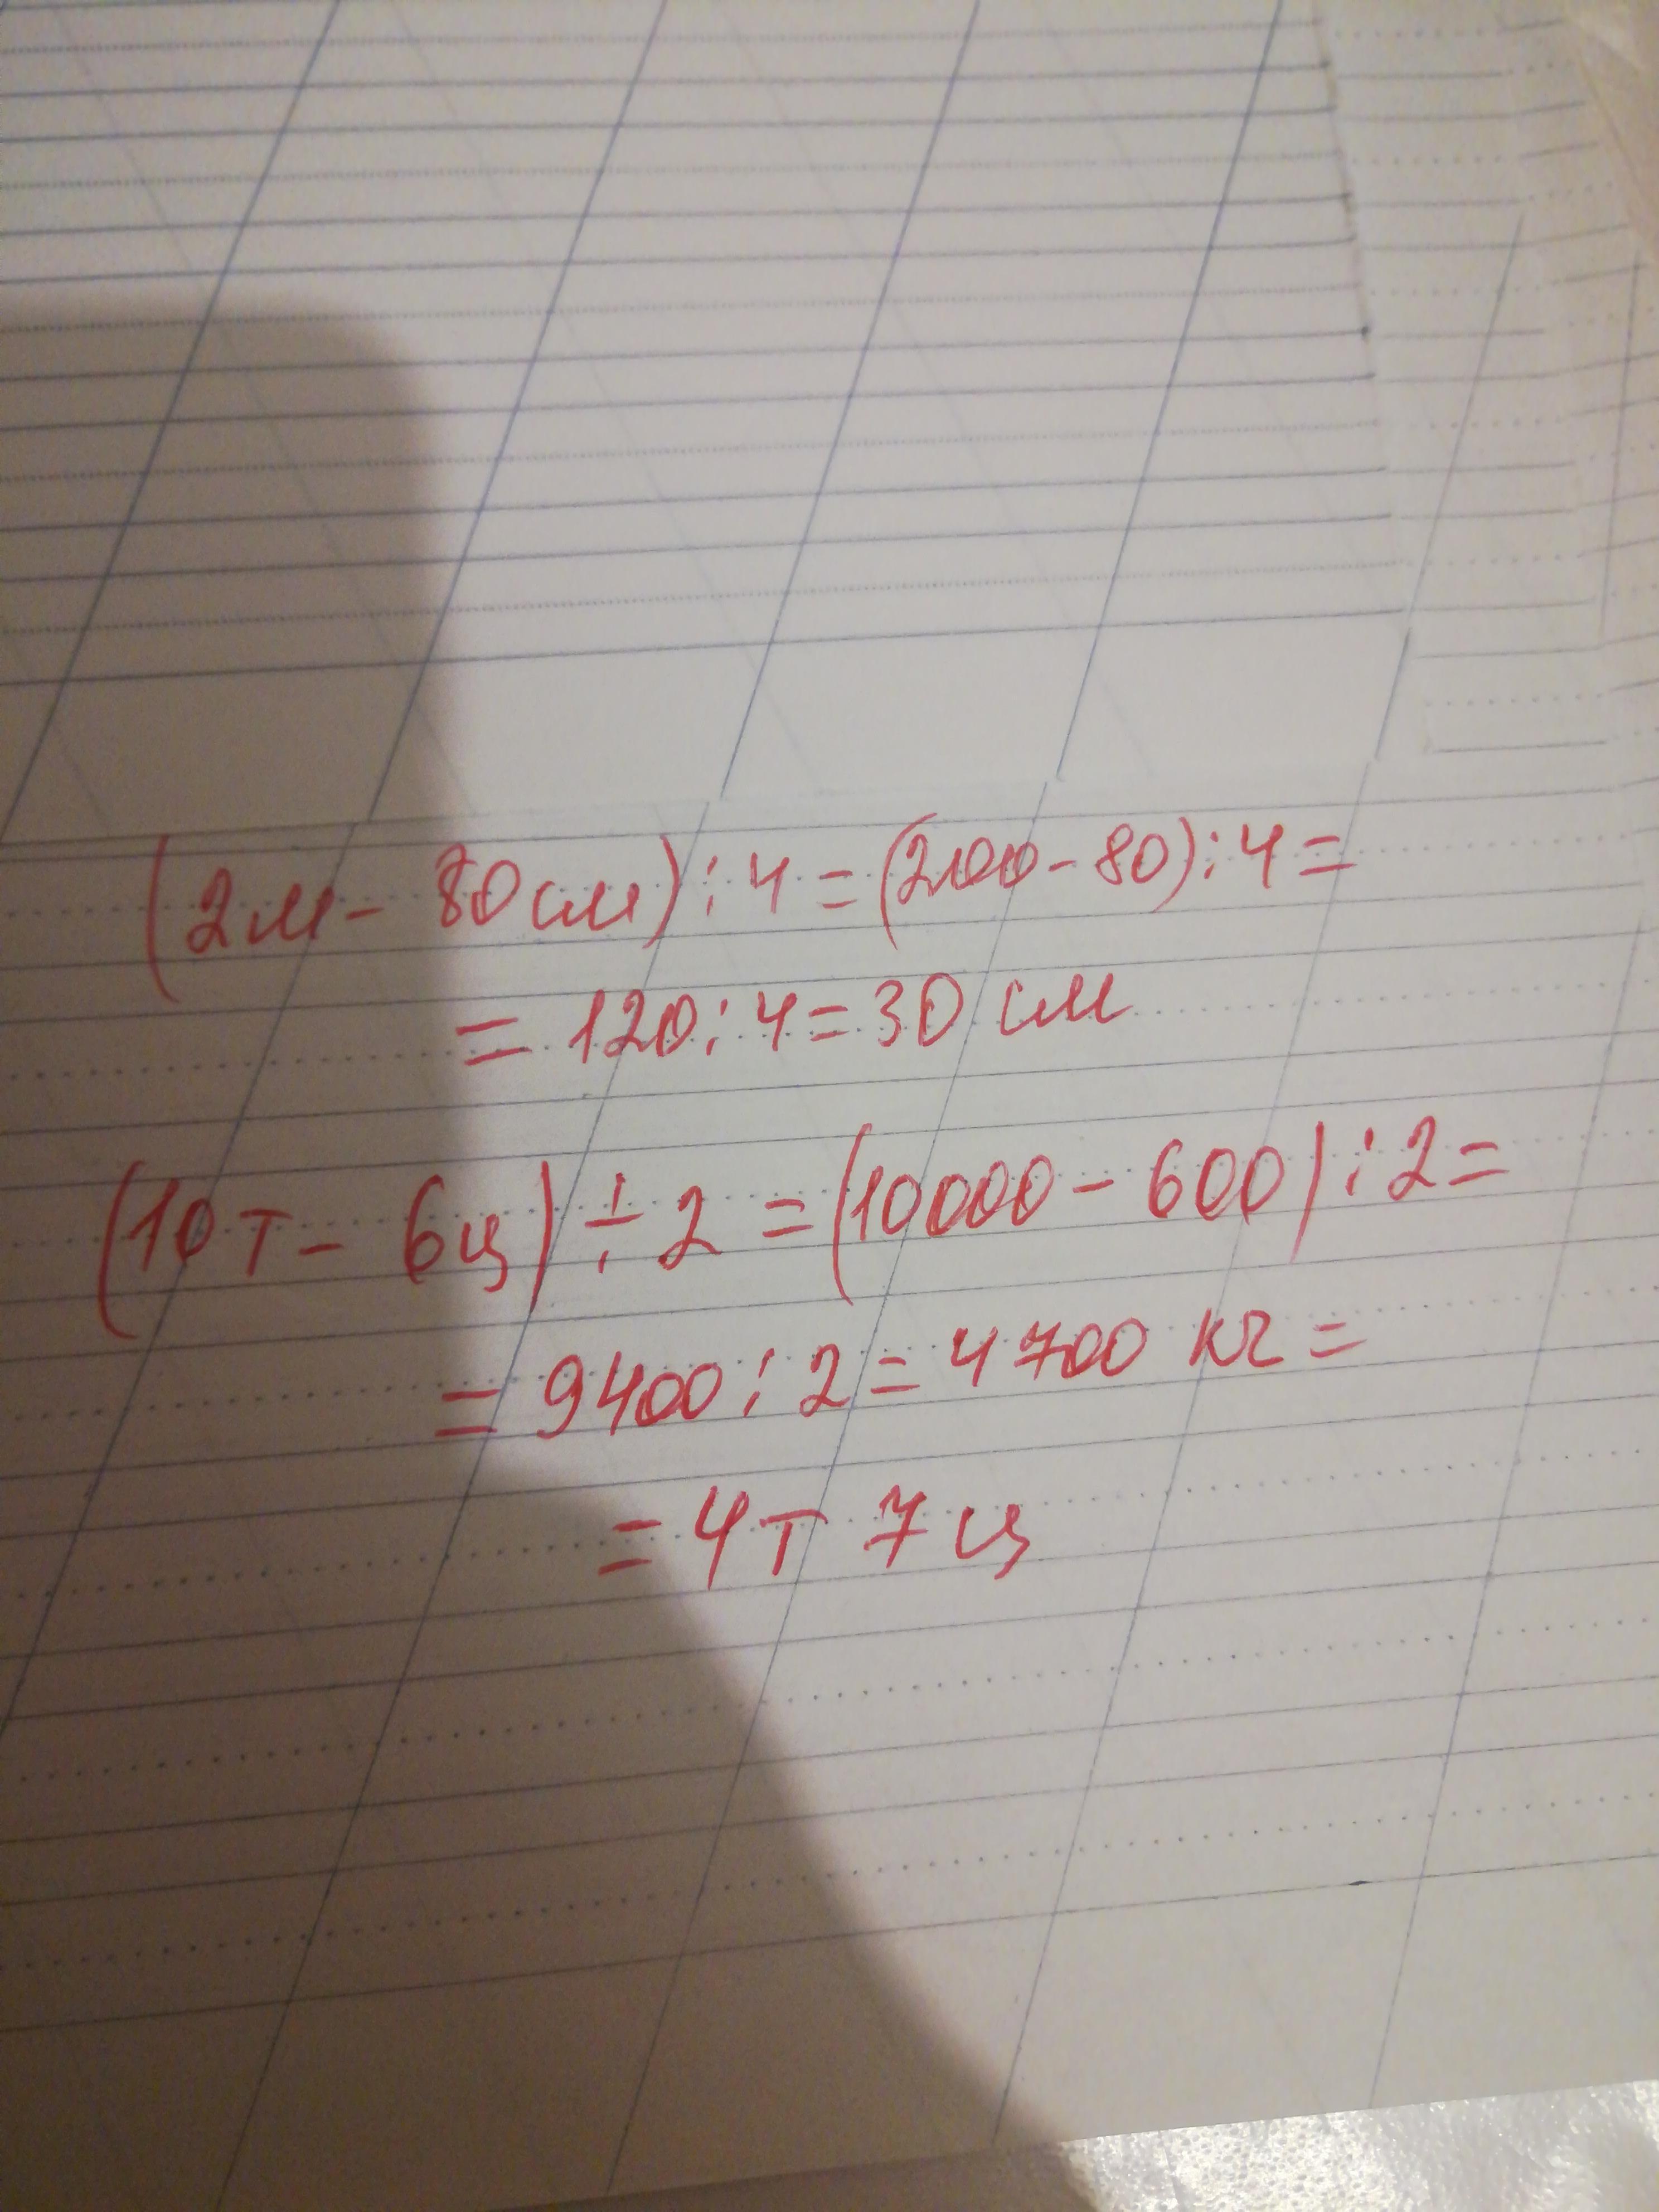 (2м - 80см) : 4 = (200 - 80) : 4 =
= 120 : 4 = 30 см
(10т - 6ц) ÷ 2 = (10000 - 600) : 2 =
= 9400 : 2 = 4700 кг =
= 4т 7ц